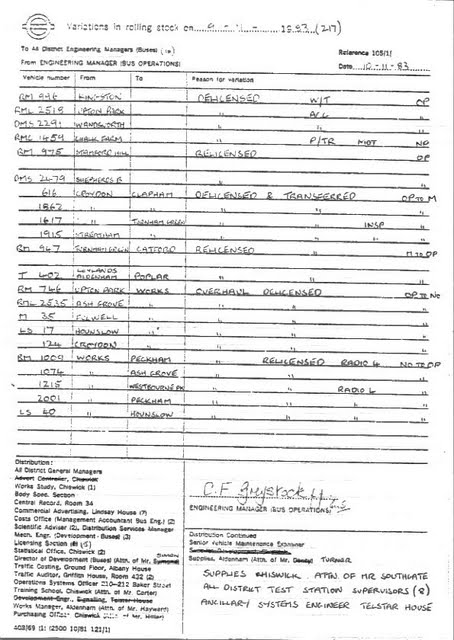 Variations in rolling stock on 9 - 11 - 1983 (217)
To All District Engineering Managers (Buses) Reference 105/1/
From ENGINEERING MANAGER (BUS OPERATIONS) Date 10-11-83
Vehicle number From To Reason for variation
RM 996 KINGSTON DELICENSED W/T OP
RML 2518 UPTON PARK " A/L "
DMS 2291 WANDSWORTH " " "
RMC 1459 CHALK FARM " P/TR MOT NO
RM 975 STAMFORD HILL RELICENSED OP
DMS 2479 SHEPHERDS B " "
616 CROYDON CLAPHAM DELICENSED & TRANSFERRED OP TO M
1862 " " " " "
1617 " TURNHAM GREEN " " INSP "
1915 STREATHAM " " " " "
RM 947 TURNHAM GREEN CATFORD RELICENSED " M TO OP
T 402 LEYLANDS ALDENHAM POPLAR " "
RM 746 UPTON PARK WORKS OVERHAUL DELICENSED OP TO NO
RML 2535 ASH GROVE " " " "
M 35 FULWELL " " " "
LS 17 HOUNSLOW " " " "
124 CROYDON " " " "
RM 1009 WORKS PECKHAM " RELICENSED RADIO L NO TO OP
1074 " ASH GROVE " " "
1215 " WESTBOURNE PK " " RADIO L "
2001 " PECKHAM " " " "
LS 40 " HOUNSLOW " " " "
Distribution:
All District General Managers
Advert Controller, Chiswick
Works Study, Chiswick (1)
Body Spec. Section
Central Record, Room 34
Commercial Advertising, Lindsay House (7)
Costs Office (Management Accountant Bus Eng.) (2)
Scientific Adviser (2), Distribution Services Manager
Mech. Engr. (Development - Buses) (3)
Licensing Section
Statistical Office, Chiswick (2)
Director of Development (Buses) (Attn. of Mr.
Traffic Costing, Ground Floor, Albany House
Traffic Auditor, Griffith House, Room 432 (2)
Operations Systems Officer 210-212 Baker Street
Training School, Chiswick (Attn. of Mr. Carter)
Development Engr., Signalling, Telstar House
Works Manager, Aldenham (Attn. of Mr. Hayward)
Purchasing Officer, Chiswick (Attn. of Mr.
403/69 (1) (2500 10/81 121/1)
ENGINEERING MANAGER (BUS OPERATIONS)
Distribution Continued
Senior Vehicle Maintenance Examiner
Supplies, Aldenham (Attn. of Mr. TURNER
SUPPLIES CHISWICK. ATTN OF MR SOUTHGATE
ALL DISTRICT TEST STATION SUPERVISORS (8)
ANCILLARY SYSTEMS ENGINEER TELSTAR HOUSE